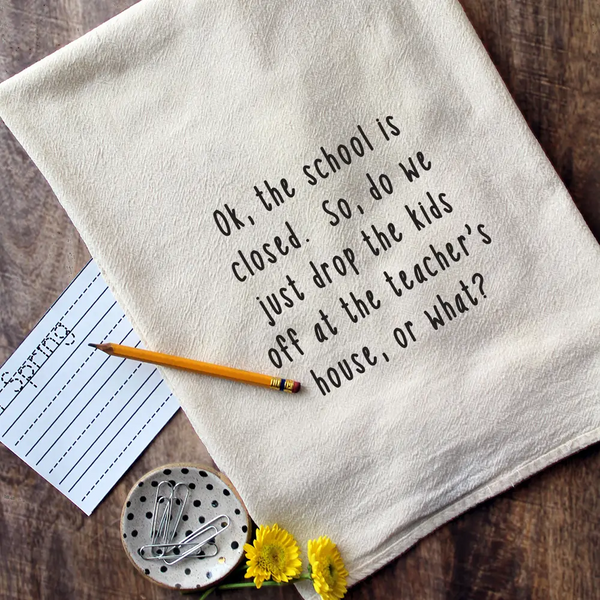 Ok, the school is
closed. So, do we
just drop the kids
off at the teacher's
house, or what?
Spring